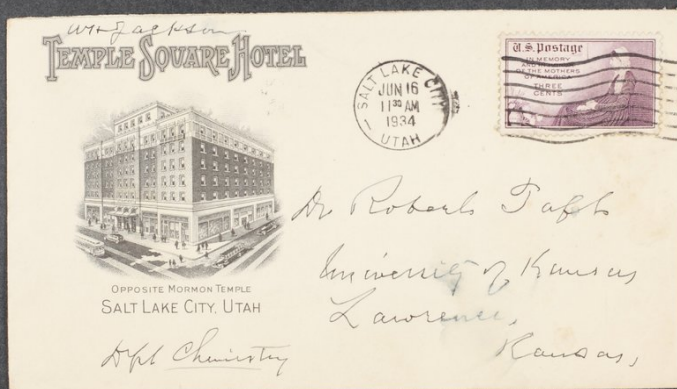 WH Jackson
TEMPLE SQUARE HOTEL
OPPOSITE MORMON TEMPLE
SALT LAKE CITY, UTAH
SALT LAKE CITY
JUN 16
11 30 AM
1934
UTAH
U.S. Postage
IN MEMORY
AND IN HONOR
OF THE MOTHERS
OF AMERICA
THREE
CENTS
Dr Robert Taft
University of Kansas
Lawrence,
Kansas,
Dept Chemistry